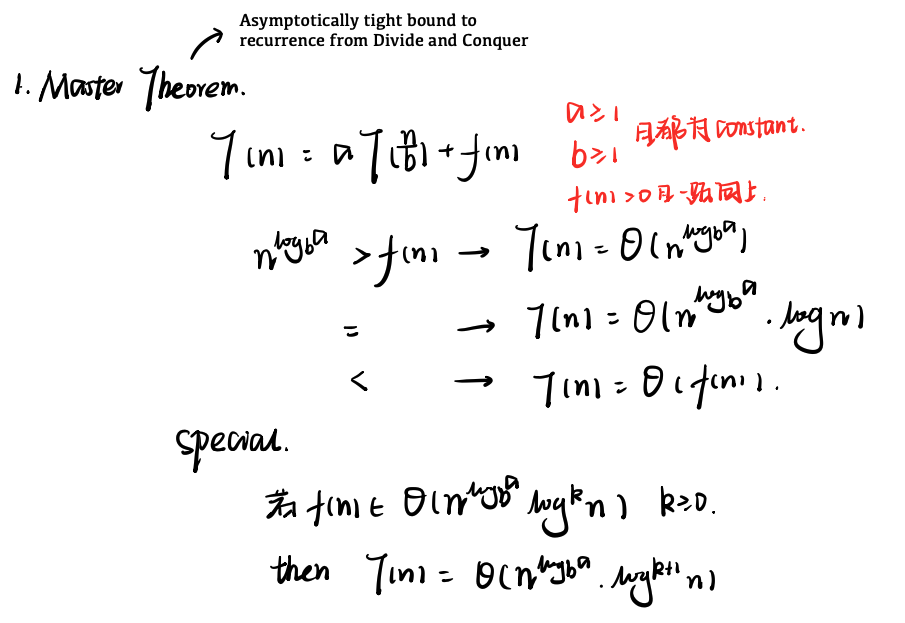 Asymptotically tight bound to
recurrence from Divide and Conquer
1. Master Theorem.
T(n) = a T(n/b) + f(n)
a ≥ 1
b ≥ 1
且都为 constant.
f(n) > 0 且一路向上.
n^{log_b a} > f(n) → T(n) = Θ(n^{log_b a})
= → T(n) = Θ(n^{log_b a} · log n)
< → T(n) = Θ(f(n)).
special.
若 f(n) ∈ Θ(n^{log_b a} log^k n) k ≥ 0.
then T(n) = Θ(n^{log_b a} · log^{k+1} n)